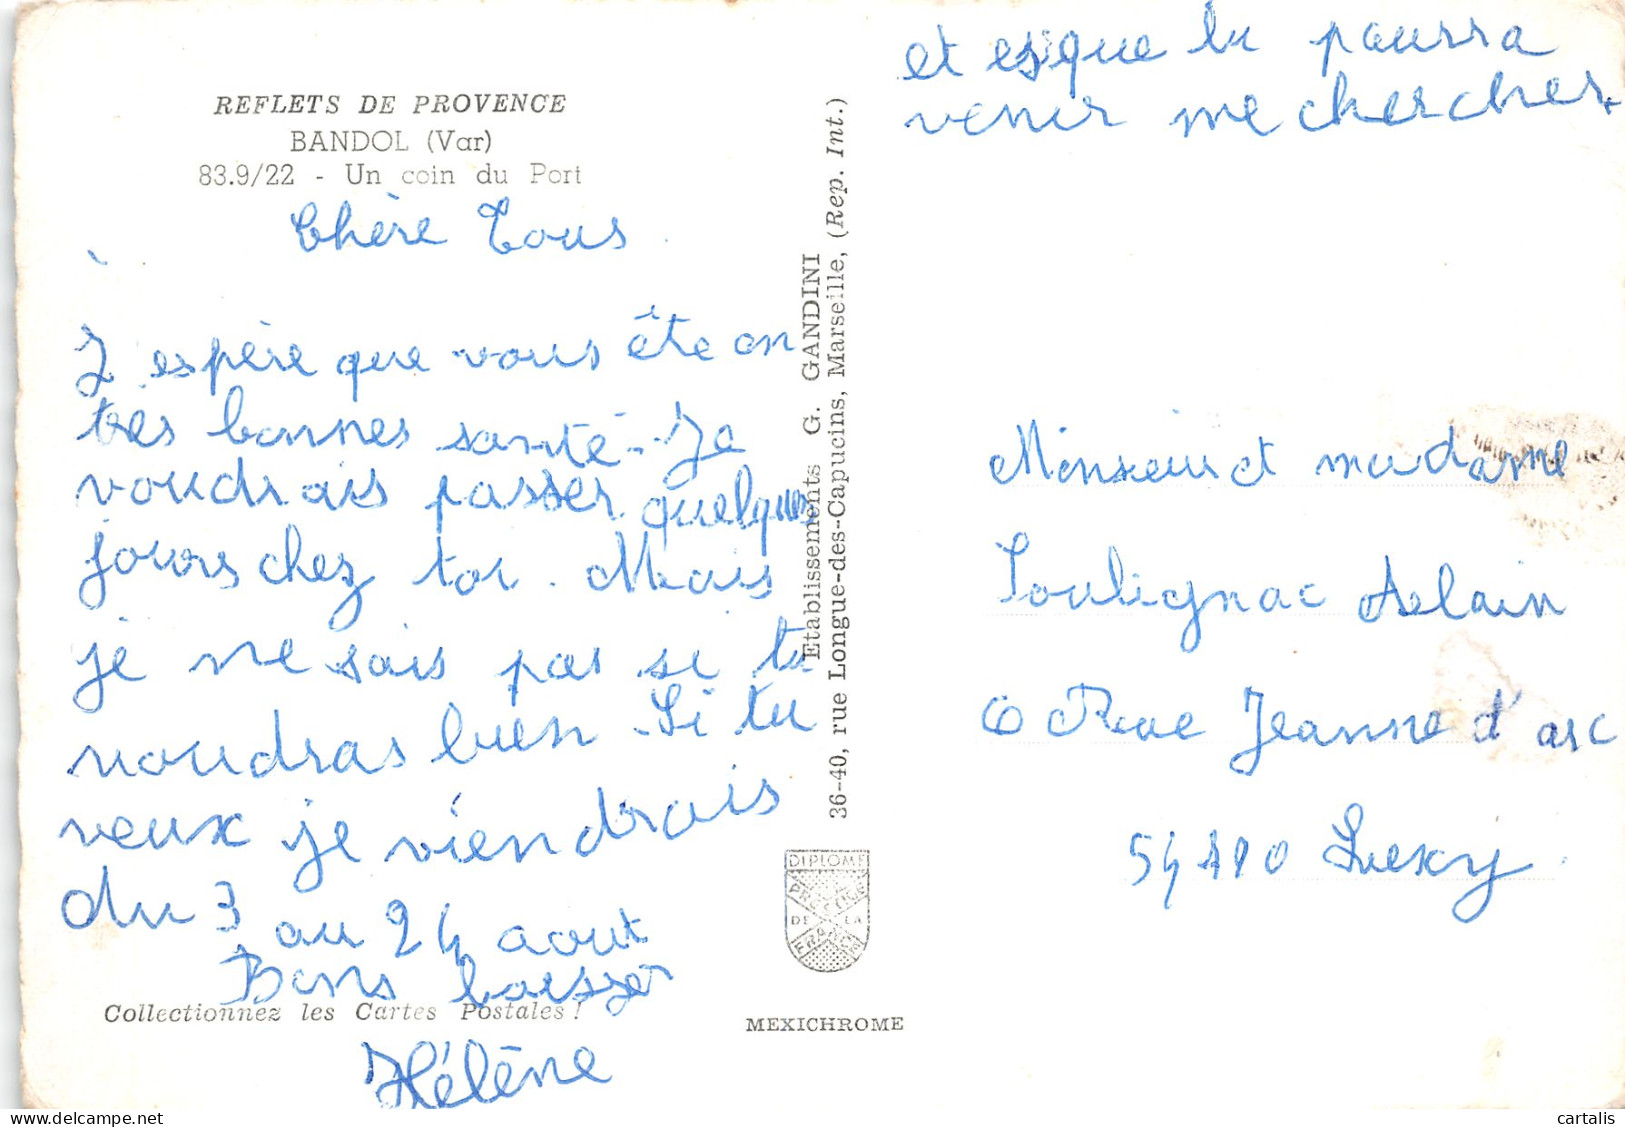 REFLETS DE PROVENCE
BANDOL (Var)
83.9/22 - Un coin du Port
Chère Tous
J espère que vous ête en
tres bonnes santé - Je
voudrais passer quelques
jours chez toi. Mais
je ne sais pas si tu
voudras bien - Si tu
veux je viendrais
du 3 au 24 aout
Bons baisser
Collectionnez les Cartes Postales !
Hélène
Etablissements G. GANDINI
36-40, rue Longue-des-Capucins, Marseille, (Rep. Int.)
DIPLOME
PRESTIGE
DE LA
FRANCE
MEXICHROME
et esque tu pourra
venir me chercher
Monsieur et madame
Soulignac Alain
6 Rue Jeanne d'arc
Lexy
cartalis
www.delcampe.net